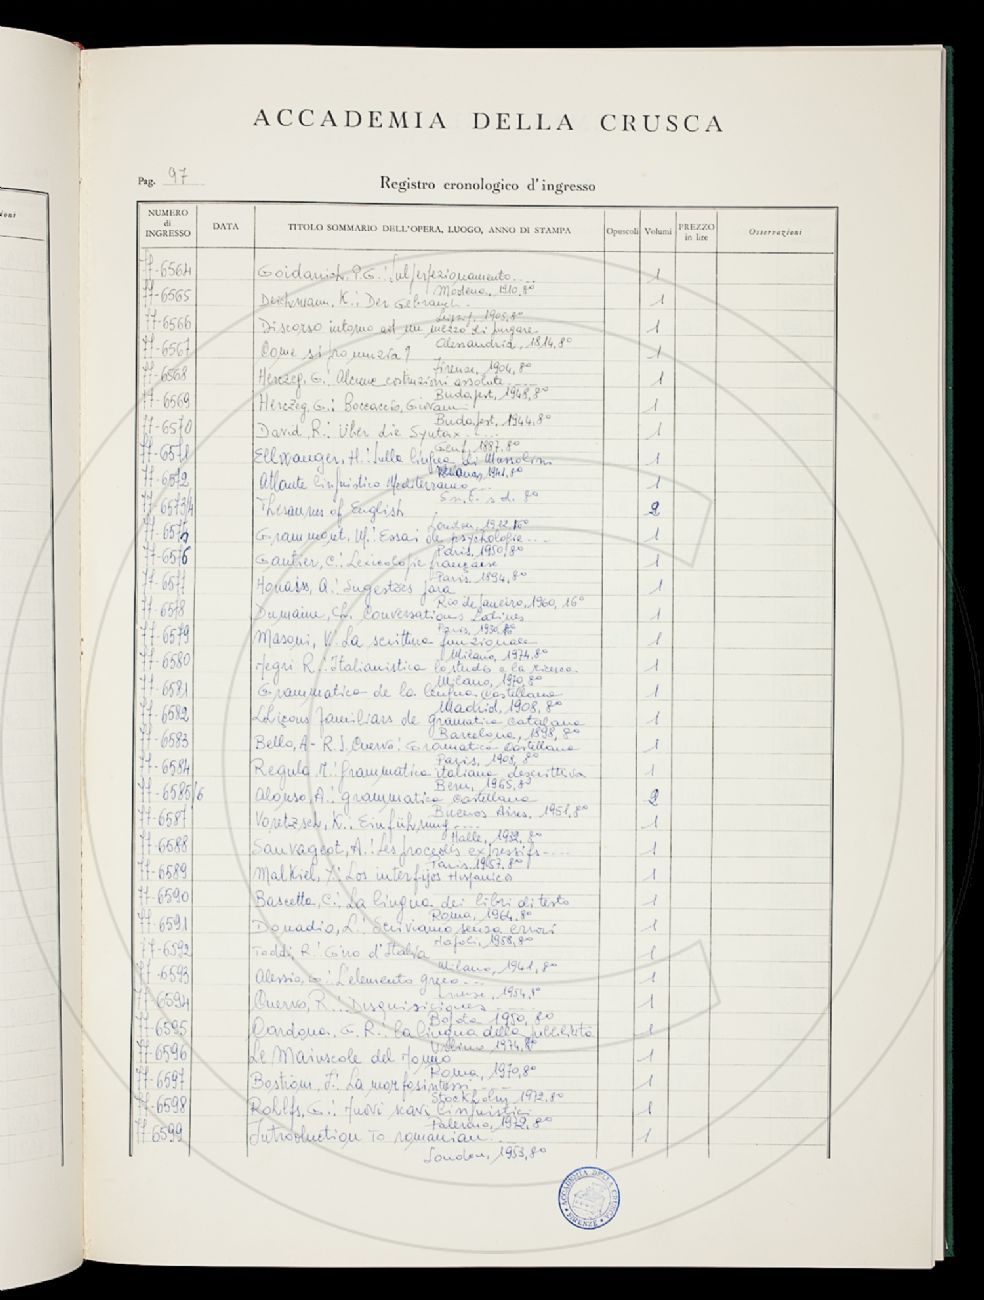 ACCADEMIA DELLA CRUSCA
Pag. 97
Registro cronologico d'ingresso
NUMERO di INGRESSO DATA TITOLO SOMMARIO DELL'OPERA, LUOGO, ANNO DI STAMPA Opuscoli Volumi PREZZO in lire Osservazioni
77-6564 Goidanich, P.G.: Sul perfezionamento.... 1
Modena, 1910, 8º
77-6565 Deichmann, K.: Der Gebrauch. 1
1905, 8º
77-6566 Discorso intorno ad un mezzo di purgare. 1
Alessandria, 1814, 8º
77-6567 Come si pronunzia? 1
Firenze, 1904, 8º
77-6568 Herczeg, G.: Alcune costruzioni assolute..... 1
Budapest, 1948, 8º
77-6569 Herczeg, G.: Boccaccio, Giovanni 1
Budapest, 1944, 8º
77-6570 David, R.: Über die Syntax..... 1
Genf, 1887, 8º
77-6571 Ellwanger, H.: Sulla lingua di Mussolini 1
1941, 8º
77-6572 Atlante linguistico Mediterraneo.... 1
s.n.t. s.d. 8º
77-6573/4 Thesaurus of English 2
London, 1912, 16º
77-6575 Grammont, M.: Essai de psychologie.... 1
Paris, 1950, 8º
77-6576 Gautier, C.: Lexicologie française 1
Paris, 1894, 8º
77-6577 Houaiss, A.: Sugestões para 1
Rio de Janeiro, 1960, 16º
77-6578 Dumaine, Ch. Conversations Latines 1
Paris,
77-6579 Masoni, V. La scrittura funzionale 1
Milano, 1974, 8º
77-6580 Negri R.: Italianistica lo studio e la ricerca. 1
Milano, 1970, 8º
77-6581 Grammatica de la lengua castellana 1
Madrid, 1908, 8º
77-6582 Lliçons familiars de gramatica catalana 1
Barcelona, 1898, 8º
77-6583 Bello, A - R.J. Cuervo: Gramatica castellana 1
Paris, 1908, 8º
77-6584 Regula M.: Grammatica italiana descrittiva 1
Bern, 1965, 8º
77-6585/6 Alonso, A.: grammatica castellana 2
Buenos Aires, 1951, 8º
77-6587 Voretzsch, K.: Einführung.... 1
Halle, 1932, 8º
77-6588 Sauvageot, A.: Les procedés expressifs.... 1
Paris, 1957, 8º
77-6589 Malkiel, Y.: Los interfijos Hispanicos 1
77-6590 Bascetta, C.: La lingua dei libri di testo 1
Roma, 1964, 8º
77-6591 Donadio, L.: Scriviamo senza errori 1
Napoli, 1958, 8º
77-6592 Toddi, R.: Giro d'Italia 1
Milano, 1941, 8º
77-6593 Alessio, G.: L'elemento greco.... 1
Firenze, 1954, 8º
77-6594 Cuervo, R.: Disquisiciones 1
Bogota 1950, 8º
77-6595 Cardona, G.R.: la lingua della pubblicità 1
Urbino 1974, 8º
77-6596 Le Maiuscole del 1
Roma, 1970, 8º
77-6597 Boström, I.: La morfosintassi.... 1
Stockholm 1972, 8º
77-6598 Rohlfs, G.: Nuovi scavi linguistici 1
Palermo, 1972, 8º
77-6599 Introduction to romanian.... 1
London, 1953, 8º
ACCADEMIA DELLA CRUSCA
• FIRENZE •